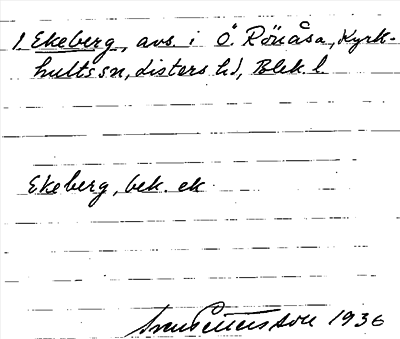 1. Ekeberg, avs. i Ö. Rönåsa, Kyrk-
hults sn, Listers hd, Blek. l.
Ekeberg, bek. ek
1936